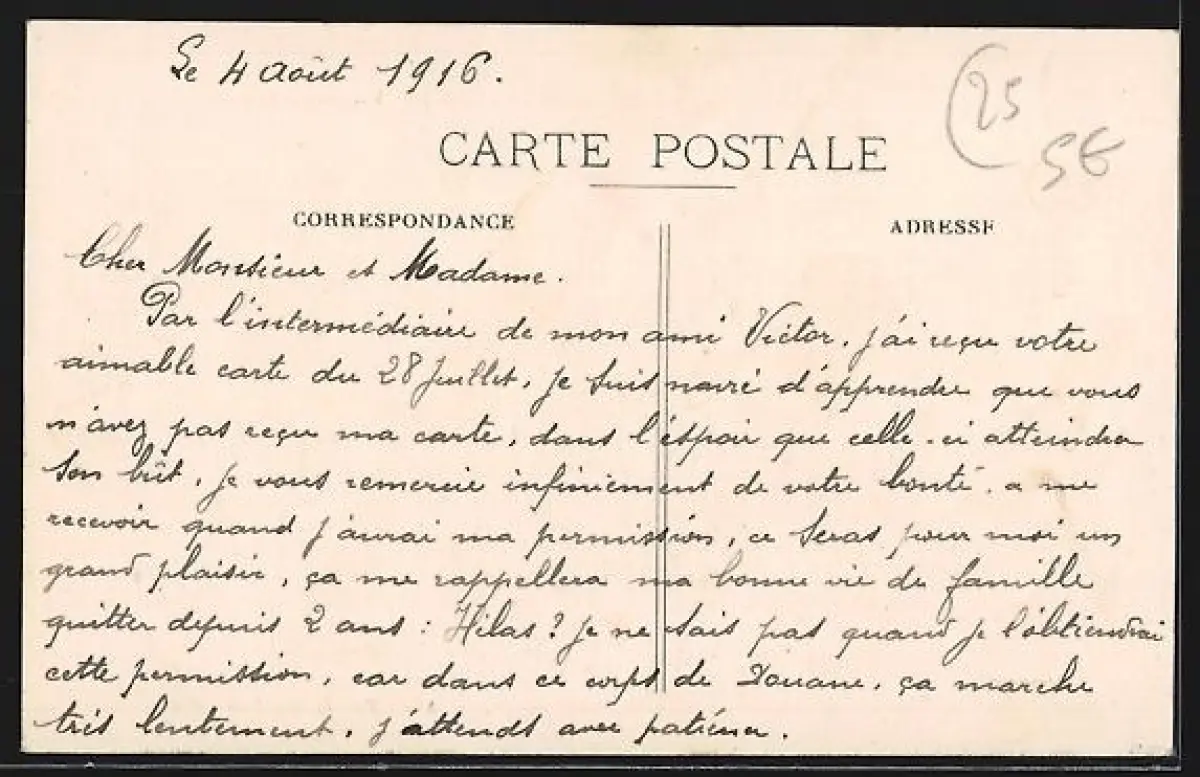 Le 4 août 1916.
25
CARTE POSTALE
5€
CORRESPONDANCE
ADRESSE
Cher Monsieur et Madame.
Par l'intermédiaire de mon ami Victor, j'ai reçu votre
aimable carte du 28 Juillet, je suis navré d'apprendre que vous
n'avez pas reçu ma carte, dans l'éspoir que celle-ci atteindra
son bût, je vous remercie infiniement de votre bonté, a me
recevoir quand j'aurai ma permission, ce seras pour moi un
grand plaisir, ça me rappellera ma bonne vie de famille
quitter depuis 2 ans : Hélas ? je ne sais pas quand je l'obtiendrai
cette permission, car dans ce corps de Douane, ça marche
très lentement, j'attends avec patience.